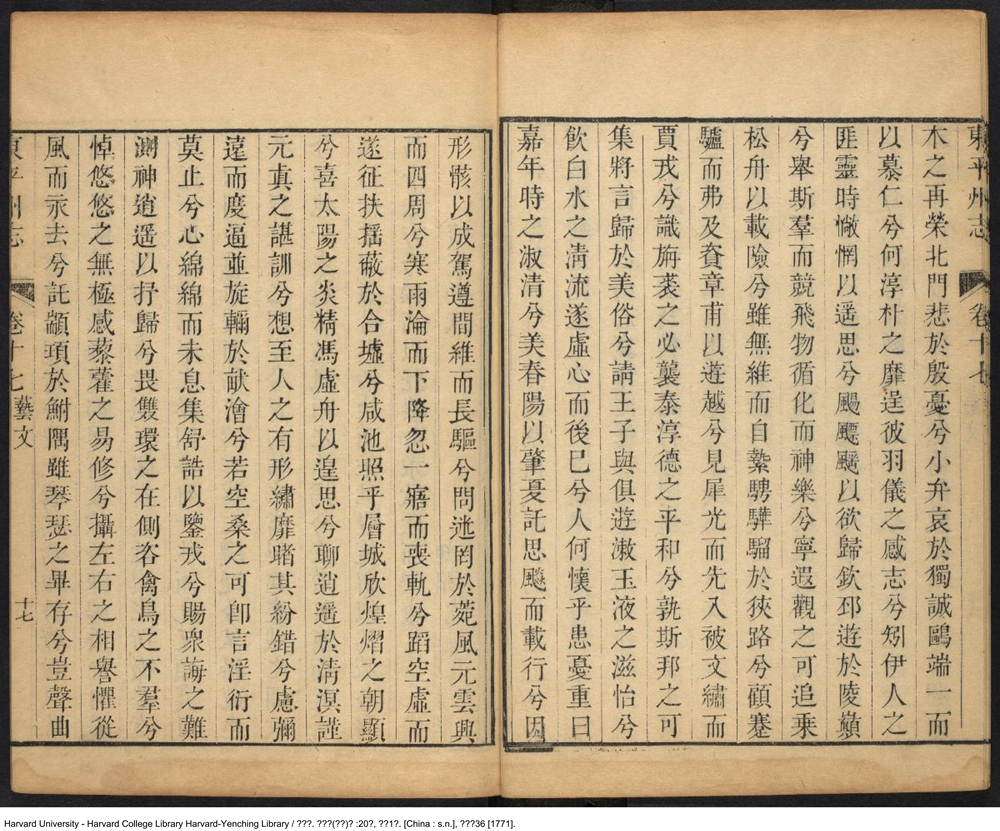 東平州志 卷十七
木之再榮北門悲於殷憂兮小弁哀於獨誠鷗端一而
以慕仁兮何淳朴之靡逞彼羽儀之感志兮矧伊人之
匪靈時㦂惘以遥思兮颺飂飂以欲歸欽邳遊於陵顛
兮舉斯羣而競飛物循化而神樂兮寧遐觀之可追乗
松舟以載險兮雖無維而自縶騁驊騮於狹路兮顧蹇
驢而弗及資章甫以遊越兮見犀光而先入被文繡而
賈戎兮識旃裘之必襲泰淳德之平和兮孰斯邦之可
集將言歸於美俗兮請王子與俱遊漱玉液之滋怡兮
飲白水之清流遂虛心而後已兮人何懷乎患憂重曰
嘉年時之淑清兮美春陽以肇夏託思飈而載行兮因
形骸以成駕遵間維而長驅兮問迷罔於菀風元雲興
而四周兮寒雨淪而下降忽一寤而喪軌兮蹈空虛而
遂征扶揺蔽於合墟兮咸池照乎層城欣煌熠之朝顯
兮喜太陽之炎精馮虛舟以遑思兮聊逍遥於清溟謹
元真之諶訓兮想至人之有形繡靡睹其紛錯兮慮彌
遠而度逼並旋輈於畎澮兮若空桑之可卽言淫衍而
莫止兮心綿綿而未息集舒誥以鑒戎兮賜衆誨之難
測神逍遥以抒歸兮畏雙環之在側咨禽鳥之不羣兮
悼悠悠之無極感藜藿之易修兮攝左右之相譽懼從
風而永去兮託顓頊於鮒隅雖琴瑟之畢存兮豈聲曲
東平州志 卷十七 藝文 十七
Harvard University - Harvard College Library Harvard-Yenching Library / ???. ???(??)? :20?, ??1?. [China : s.n.], ???36 [1771].